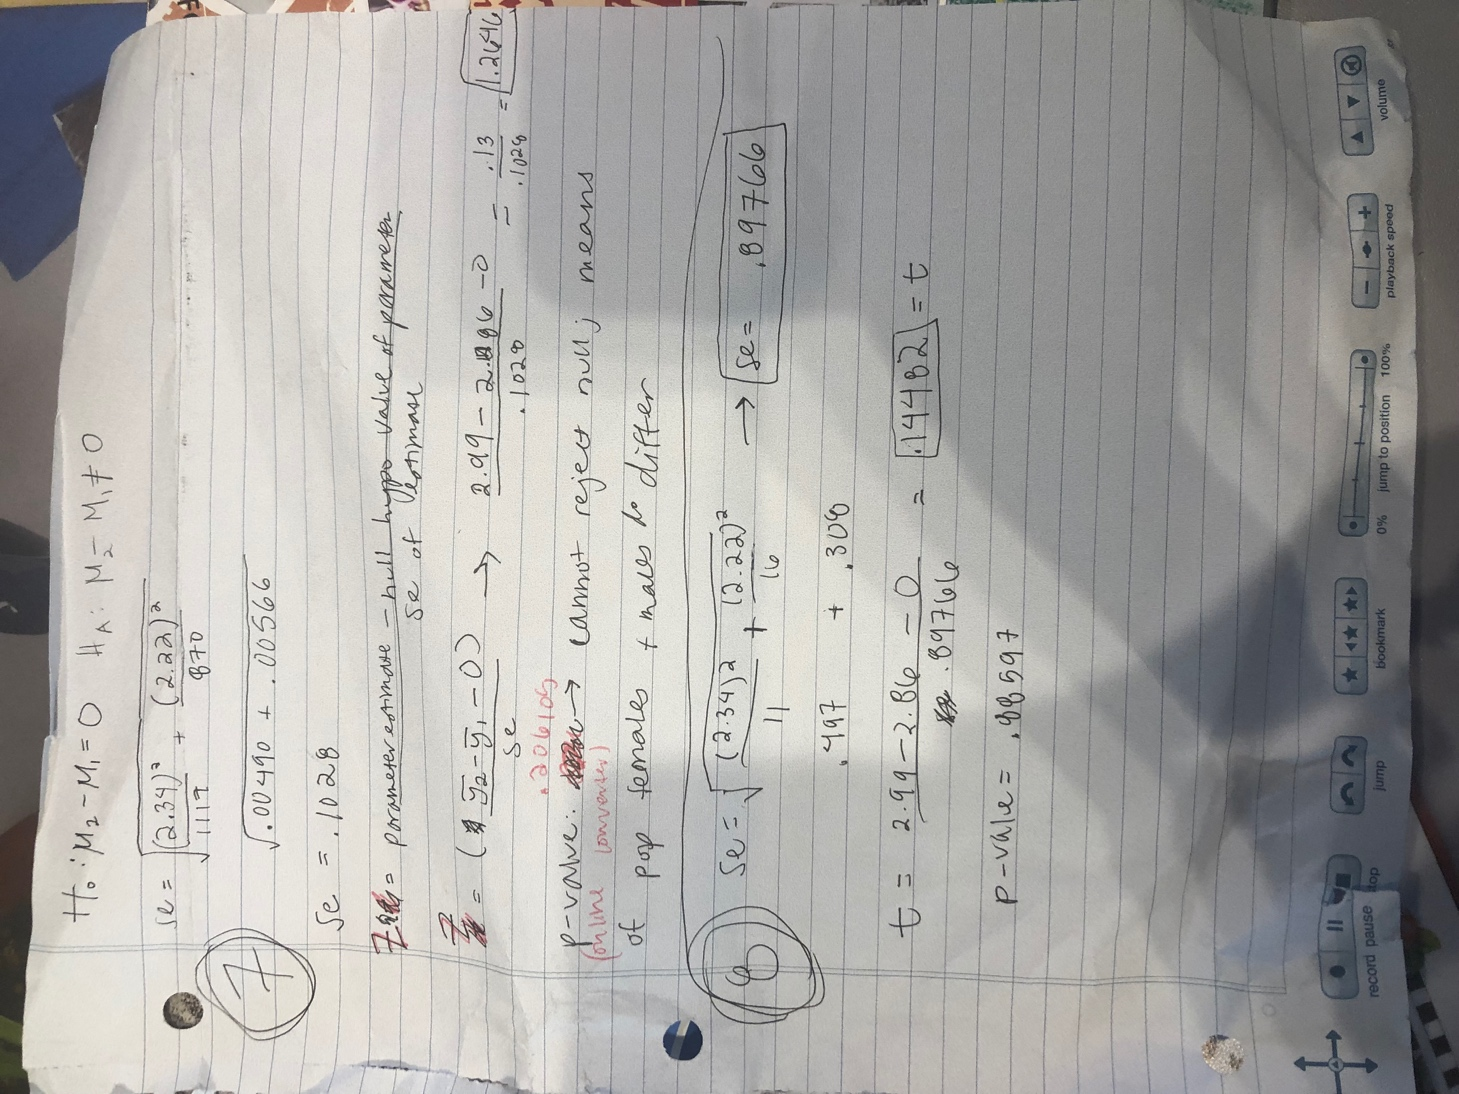 H₀: M₂ - M₁ = 0  H_A: M₂ - M₁ ≠ 0
7
se = √((2.34)²/1117 + (2.22)²/870)
√(.00490 + .00566)
Se = .1028
Z = parameter estimate - null hypo value of parameter
se of estimate
Z = (ȳ₂ - ȳ₁ - 0)/se → (2.99 - 2.86 - 0)/.1028 = .13/.1028 = 1.2646
.206105
p-value: → cannot reject null; means
(online converter)
of pop females + males do differ
8
Se = √((2.34)²/11 + (2.22)²/16) → Se = .89766
.497 + .308
t = (2.99 - 2.86 - 0)/.89766 = .14482 = t
p-value = .88597
record pause stop
jump
bookmark
0% jump to position 100%
playback speed
volume